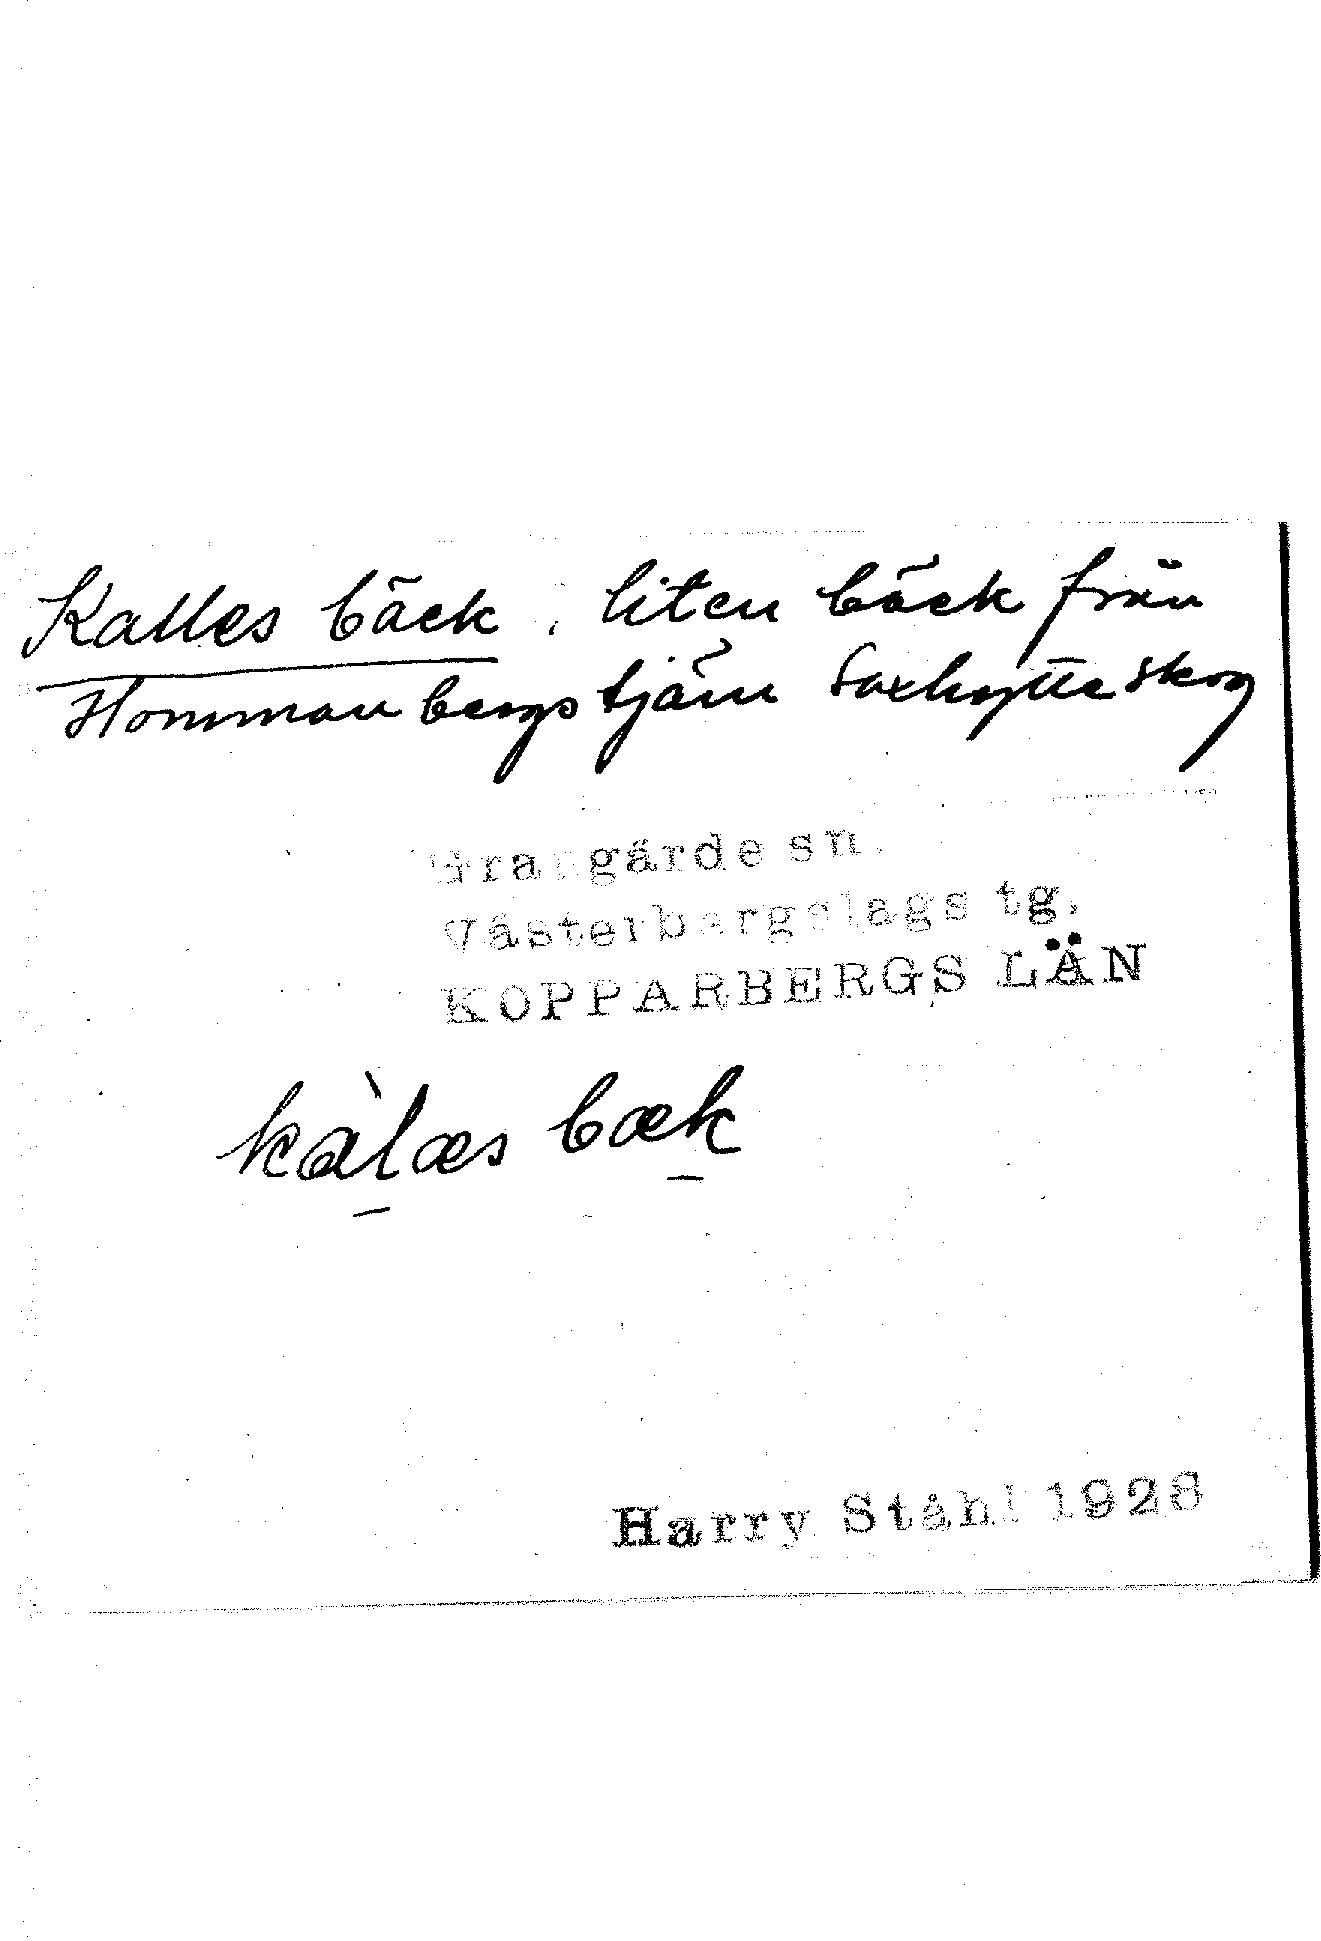 Kalles bäck, liten bäck från
Hommanbergstjärn Saxhytte skog
Grangärde sn.
Västerbergslags tg.
KOPPARBERGS LÄN
kàlæs bæk
Harry Ståhl 1928